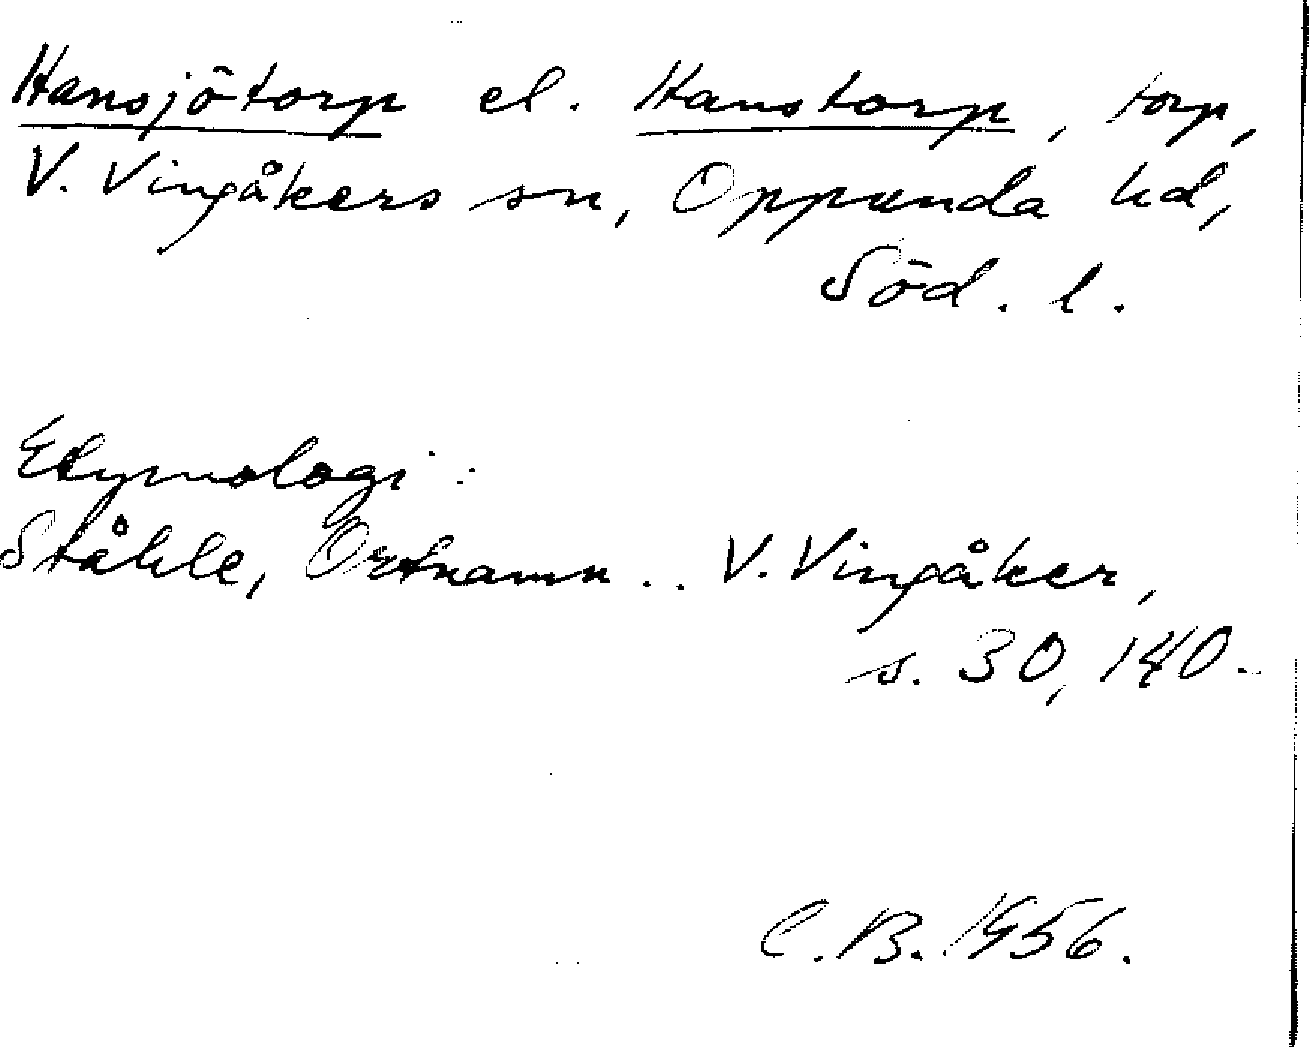 Hansjötorp el. Hanstorp, torp,
V. Vingåkers sn, Oppunda hd,
Söd. l.
Etymologi:
Ståhle, Ortnamn .. V. Vingåker,
s. 30, 140.
C.B. 1956.